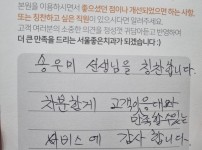 본원을 이용하시면서 좋으셨던 점이나 개선되었으면 하는 사항,
또는 칭찬하고 싶은 직원이 있으시다면 알려주세요.
고객 여러분의 소중한 의견을 정성껏 귀담아듣고 반영하여
더 큰 만족을 드리는 서울좋은치과가 되겠습니다 :)
송우미 선생님을 칭찬합니다.
차분함과 고객의응대와
만족할수있는
서비스에 감사 합니다.